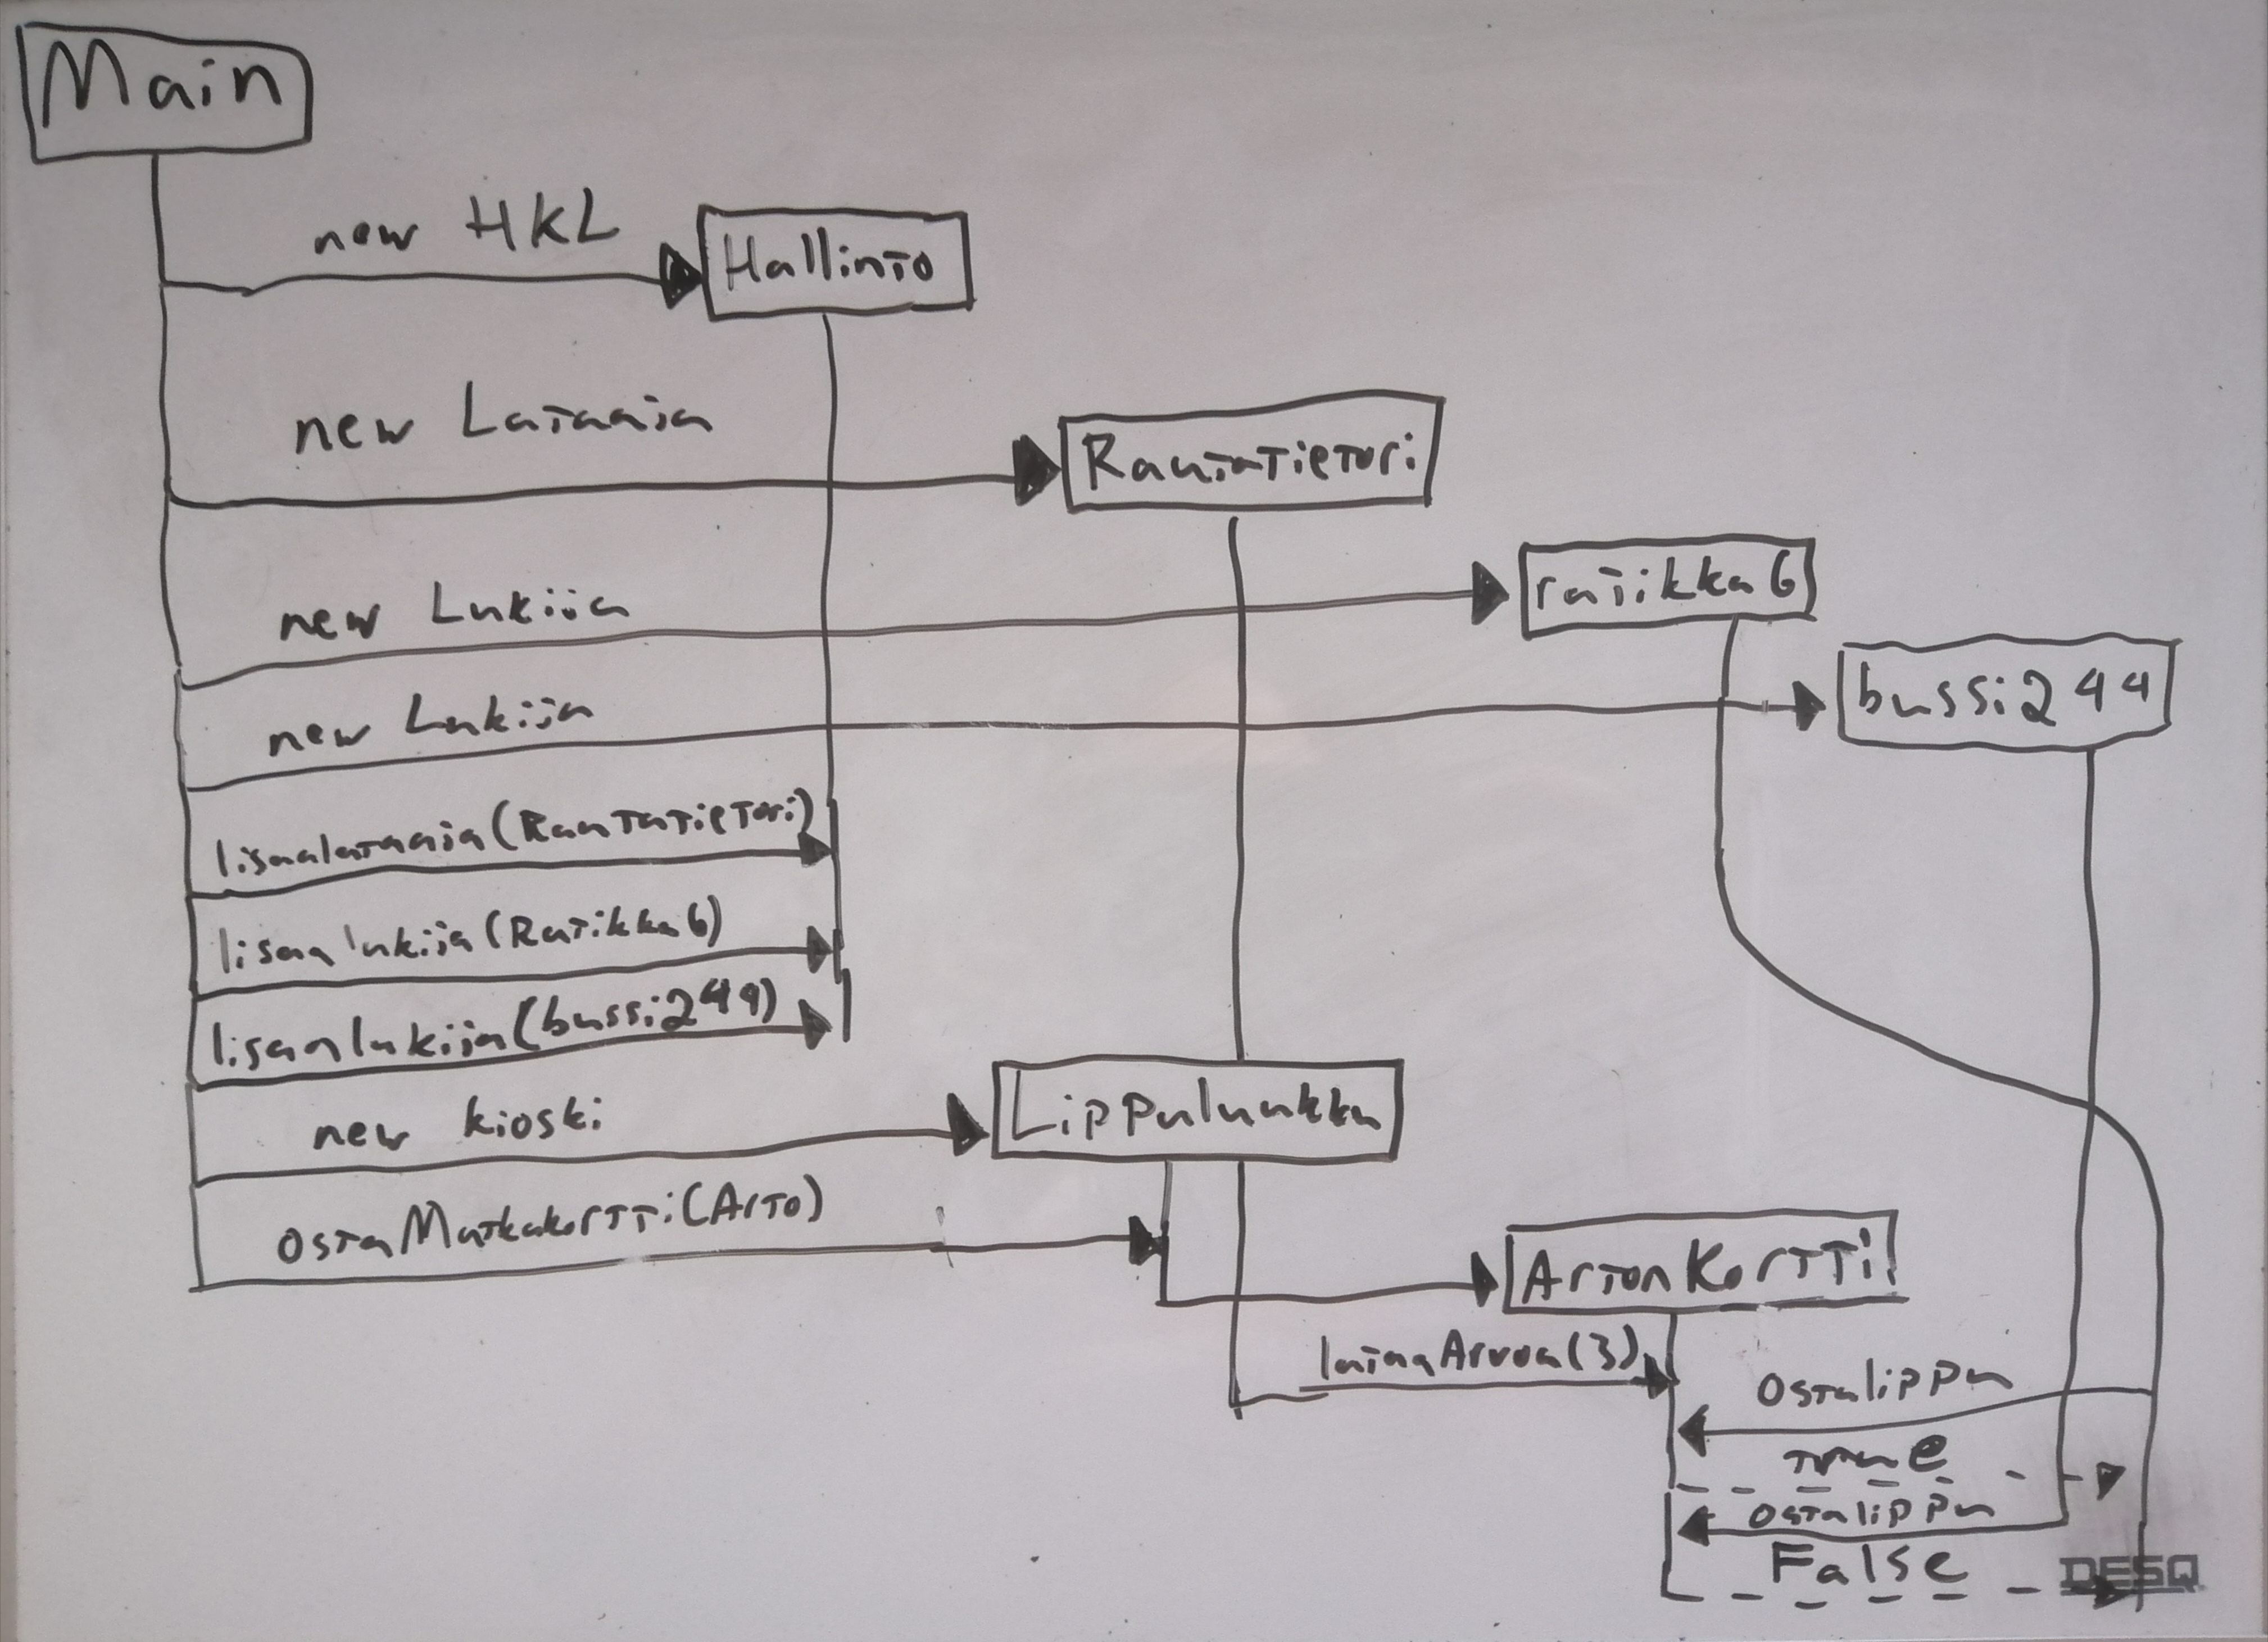 Main
new HKL
Hallinto
new Lataaja
Rautatietori
new Lukija
ratikka6
new Lukija
bussi244
lisaalataaja(Rautatietori)
lisaalukija(Ratikka6)
lisaalukija(bussi244)
new kioski
Lippuluukku
ostaMatkakortti(Arto)
ArtonKortti
lataaArvoa(3)
Ostalippu
True
ostalippu
False
DESQ